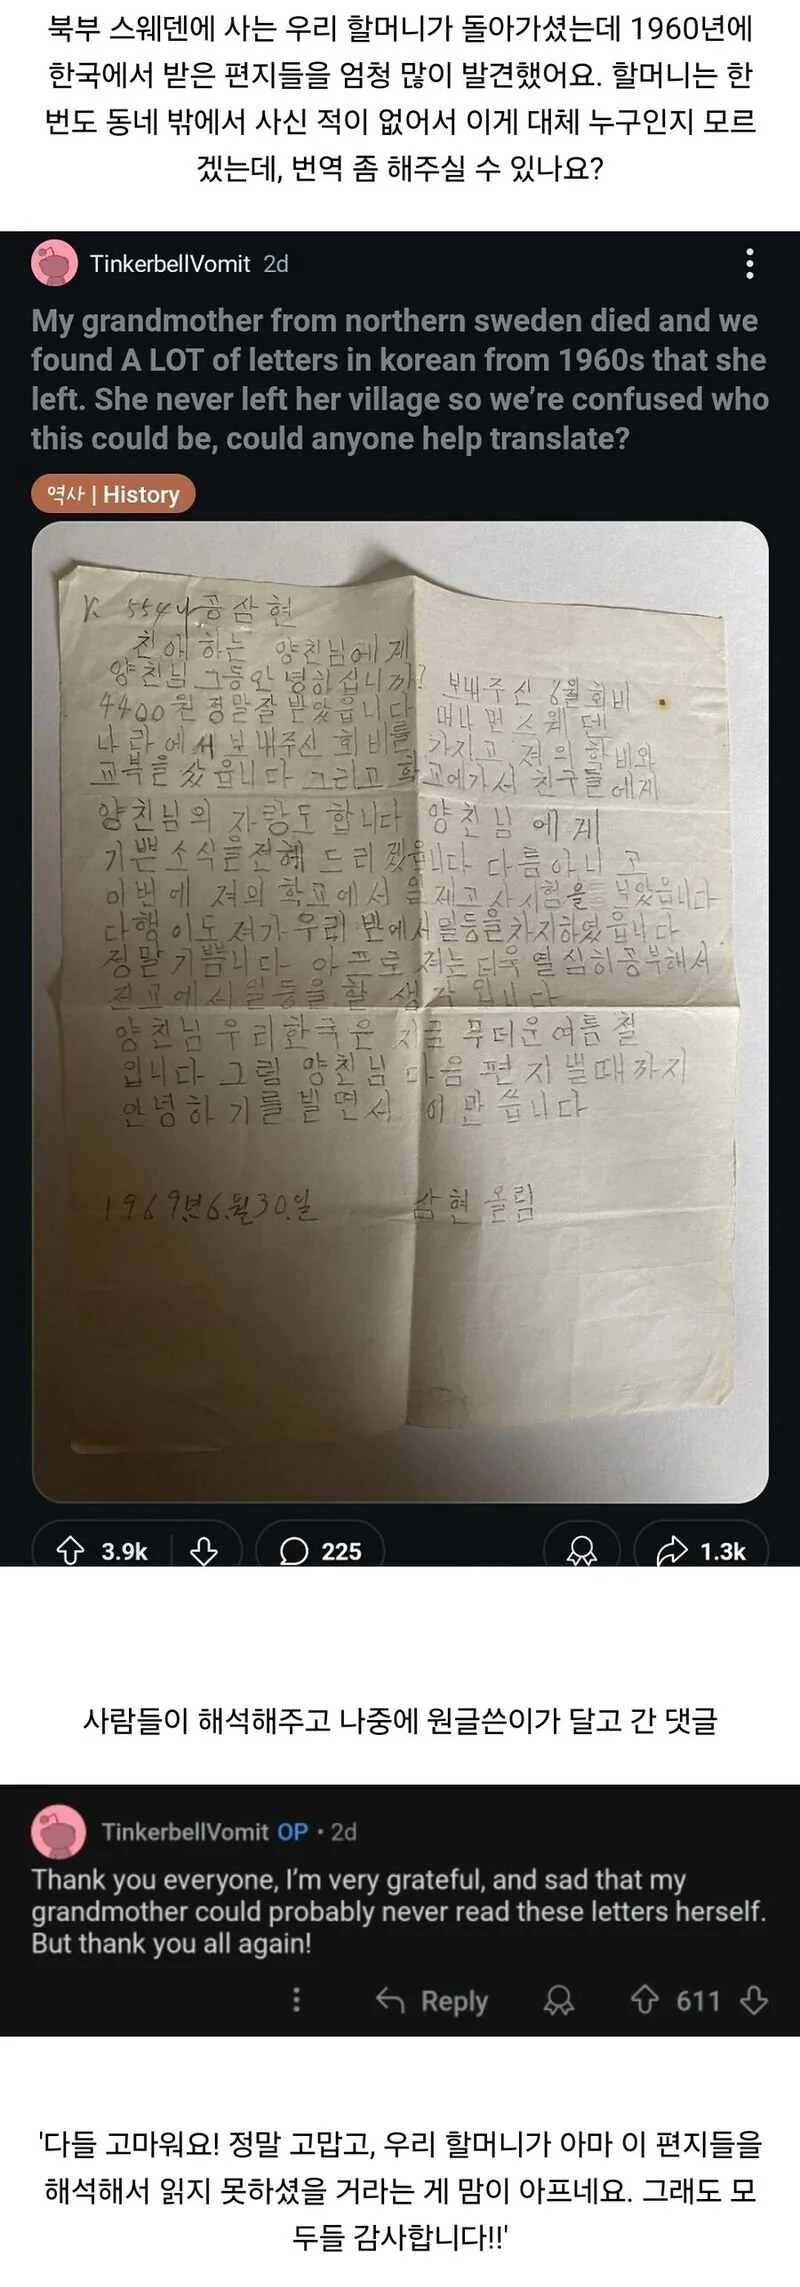 북부 스웨덴에 사는 우리 할머니가 돌아가셨는데 1960년에
한국에서 받은 편지들을 엄청 많이 발견했어요. 할머니는 한
번도 동네 밖에서 사신 적이 없어서 이게 대체 누구인지 모르
겠는데, 번역 좀 해주실 수 있나요?
TinkerbellVomit 2d
My grandmother from northern sweden died and we
found A LOT of letters in korean from 1960s that she
left. She never left her village so we're confused who
this could be, could anyone help translate?
역사 | History
K 554 공삼현
친애하는 양친님에게
양친님 그동안 녕히 십니까? 보내주신 6월 회비
4400원 정말 잘 받았읍니다 머나먼 스웨덴
나라에서 보내주신 회비를 가지고 져의 학비와
교북을 샀읍니다 그리고 학교에가서 친구들에게
양친님의 자랑도 합니다 양친님에게
기쁜 소식을 전혜 드리겠읍니다 다름아니고
이번에 져의 학교에서 일제고사 시험을 봤읍니다
다행이도 져가 우리 반에서 일등을 차지하였읍니다
정말 기쁨니다 아프로 져는 더욱 열심히 공부해서
전교에서 일등을 할 생각입니다
양친님 우리 한국은 지금 무더운 여름철
입니다 그럼 양친님 다음 편지 낼때까지
안녕하기를 빌면서 이만 씁니다
1969년 6.월 30.일 삼현 올림
3.9k 225 1.3k
사람들이 해석해주고 나중에 원글쓴이가 달고 간 댓글
TinkerbellVomit OP · 2d
Thank you everyone, I'm very grateful, and sad that my
grandmother could probably never read these letters herself.
But thank you all again!
Reply 611
'다들 고마워요! 정말 고맙고, 우리 할머니가 아마 이 편지들을
해석해서 읽지 못하셨을 거라는 게 맘이 아프네요. 그래도 모
두들 감사합니다!!'